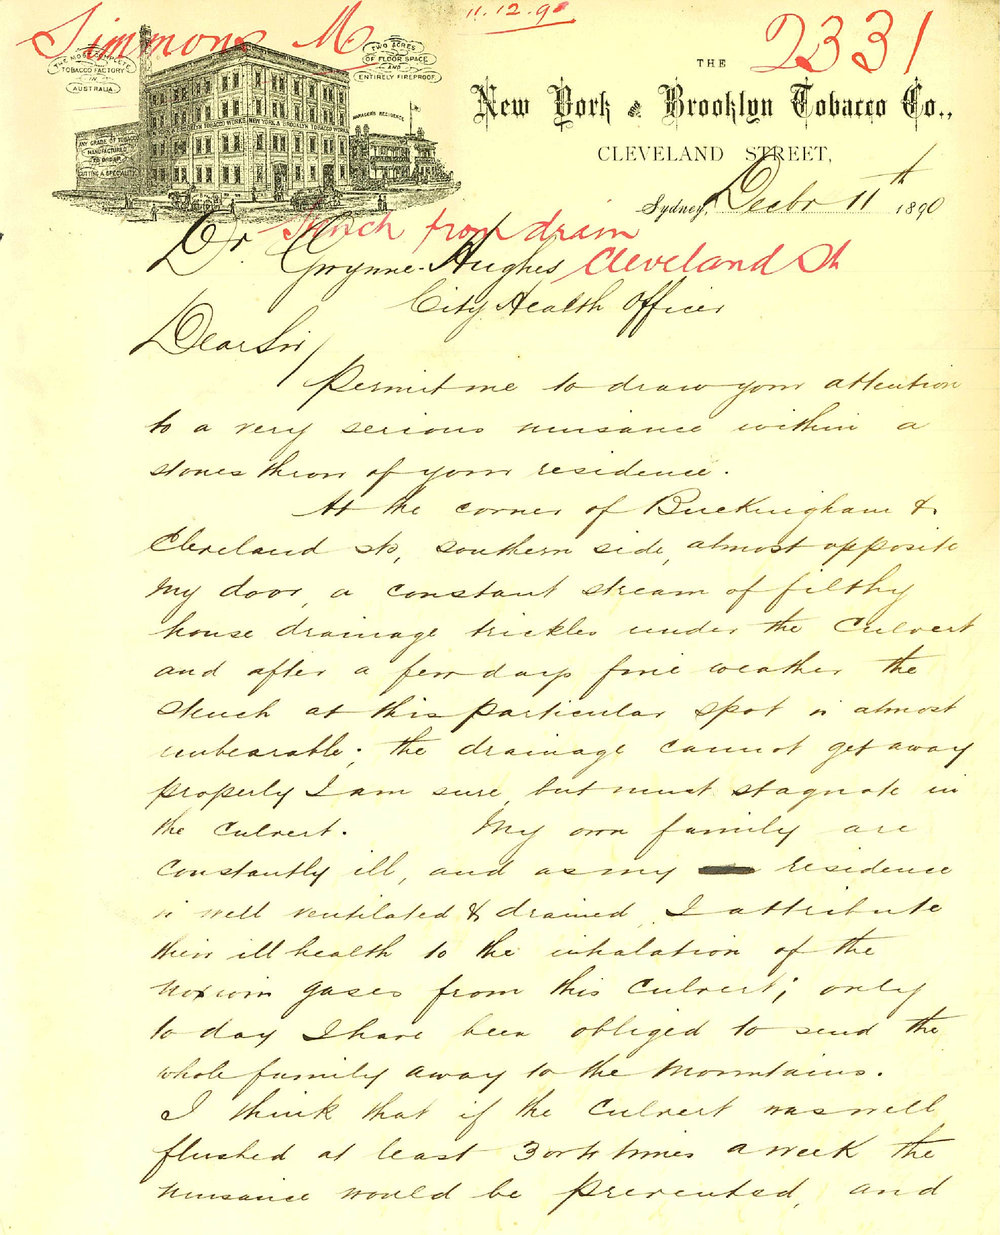 Simmons M
11.12.90
2331
THE MOST COMPLETE
TOBACCO FACTORY
IN
AUSTRALIA.
TWO ACRES
OF FLOOR SPACE
AND
ENTIRELY FIREPROOF.
MANAGERS RESIDENCE
NEW YORK & BROOKLYN TOBACCO WORKS
ANY GRADE OF TOBACCO
MANUFACTURED
TO ORDER
CUTTING A SPECIALITY
THE
New York and Brooklyn Tobacco Co.,
CLEVELAND STREET,
Sydney, Decbr 11th 1890
Stench from drain
Cleveland St
Dr. Gwynne-Hughes
City Health Officer
Dear Sir/
Permit me to draw your attention
to a very serious nuisance within a
stones throw of your residence.
At the corner of Buckingham &
Cleveland sts, southern side, almost opposite
my door, a constant stream of filthy
house drainage trickles under the Culvert
and after a few days fine weather the
stench at this particular spot is almost
unbearable; the drainage cannot get away
properly I am sure, but must stagnate in
the culvert. My own family are
constantly ill, and as my residence
is well ventilated & drained, I attribute
their ill health to the inhalation of the
noxious gases from this Culvert; only
to day I have been obliged to send the
whole family away to the Mountains.
I think that if the Culvert was well
flushed at least 3 or 4 times a week the
nuisance would be prevented, and